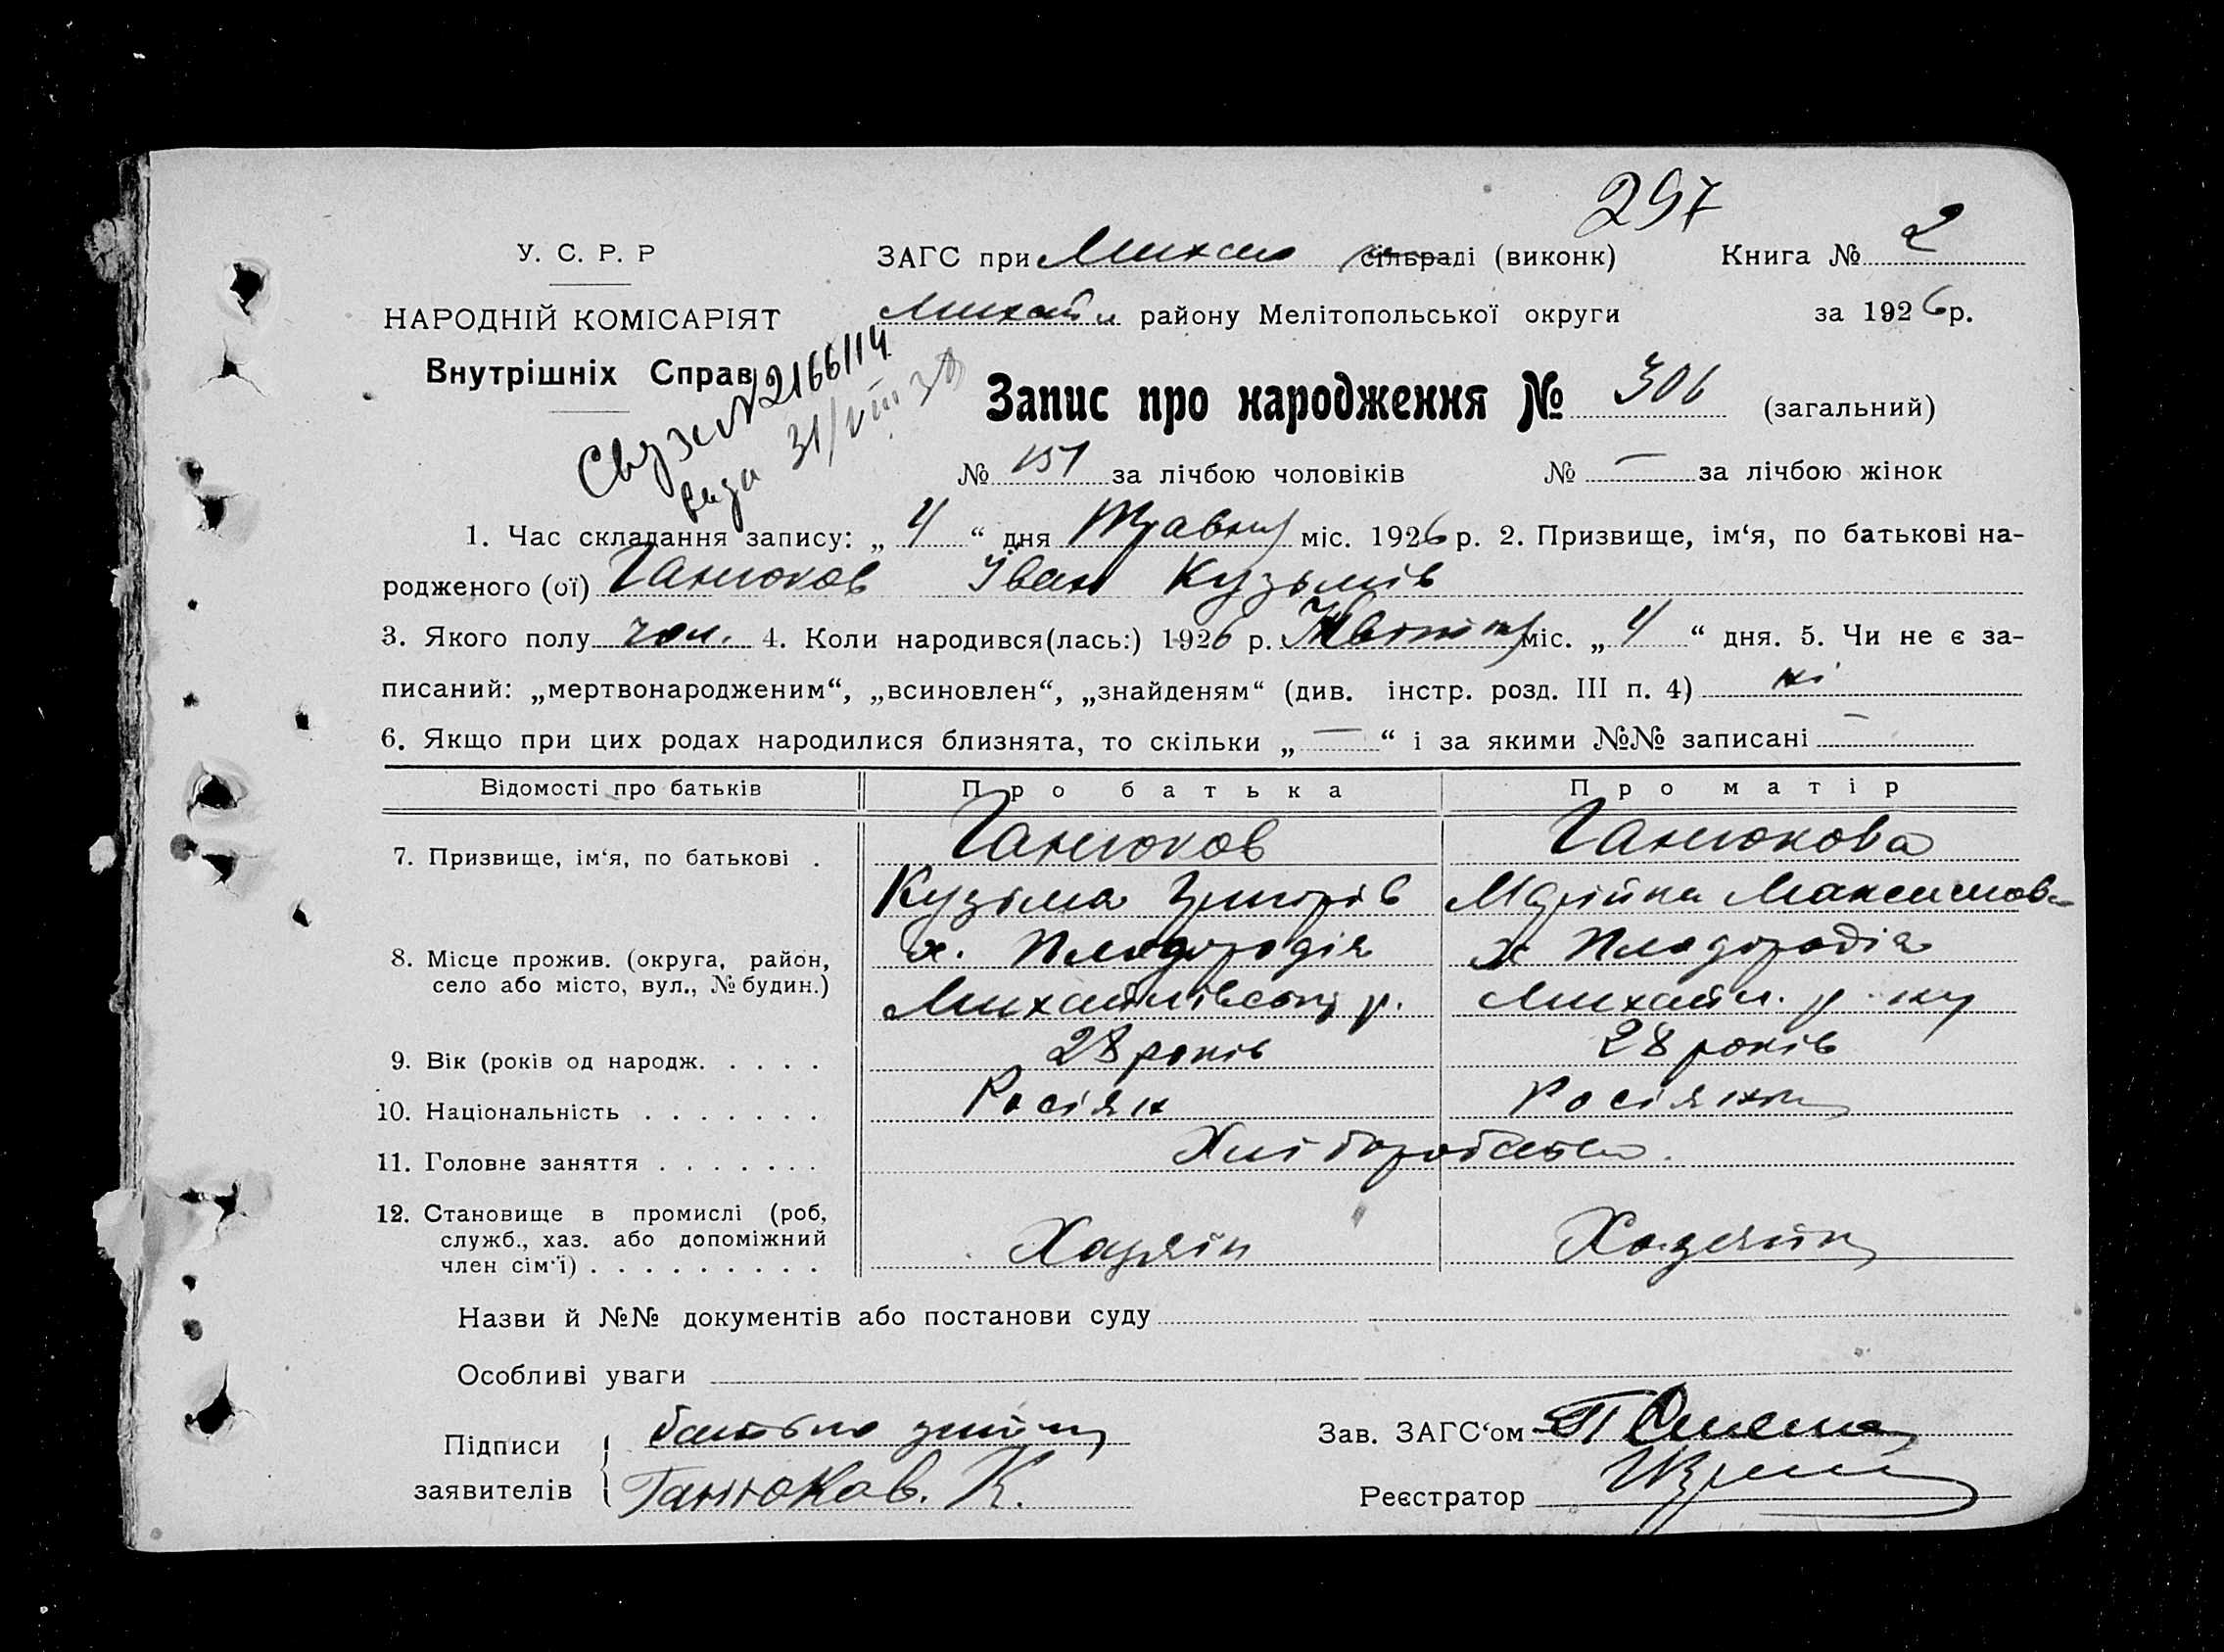 297
У. С. Р. Р
ЗАГС при Михайл сільраді (виконк) Книга № 2
НАРОДНІЙ КОМІСАРІЯТ
Михайл району Мелітопольської округи за 1926 р.
Внутрішніх Справ
№ 2166114
31/VIII
Запис про народження № 306 (загальний)
№ 151 за лічбою чоловіків № — за лічбою жінок
1. Час складання запису: „ 4 “ дня Травня міс. 1926 р. 2. Призвище, ім‘я, по батькові на-
родженого (ої) Ганюков Іван Кузьмів
3. Якого полу чол. 4. Коли народився(лась:) 1926 р. Квітня міс. „ 4 “ дня. 5. Чи не є за-
писаний: „мертвонародженим“, „всиновлен“, „знайденям“ (див. інстр. розд. III п. 4) ні
6. Якщо при цих родах народилися близнята, то скільки „ — “ і за якими №№ записані —
Відомості про батьків Про батька Про матір
7. Призвище, ім‘я, по батькові . Ганюков Ганюкова
Кузьма Григорів Марійка Максимов
8. Місце прожив. (округа, район, х. Плодородія х Плодородія
село або місто, вул., № будин.) Михайлівськ р. Михайл. р-ну
9. Вік (років од народж. . . . . 28 років 28 років
10. Національність . . . . . . . Росіян Росіянка
11. Головне заняття . . . . . . . Хліборобство.
12. Становище в промислі (роб,
служб., хаз. або допоміжний Хазяїн Хазяйка
член сім‘ї) . . . . . . . . .
Назви й №№ документів або постанови суду
Особливі уваги
Підписи батько
заявителів Ганюков. К.
Зав. ЗАГС‘ом
Реєстратор